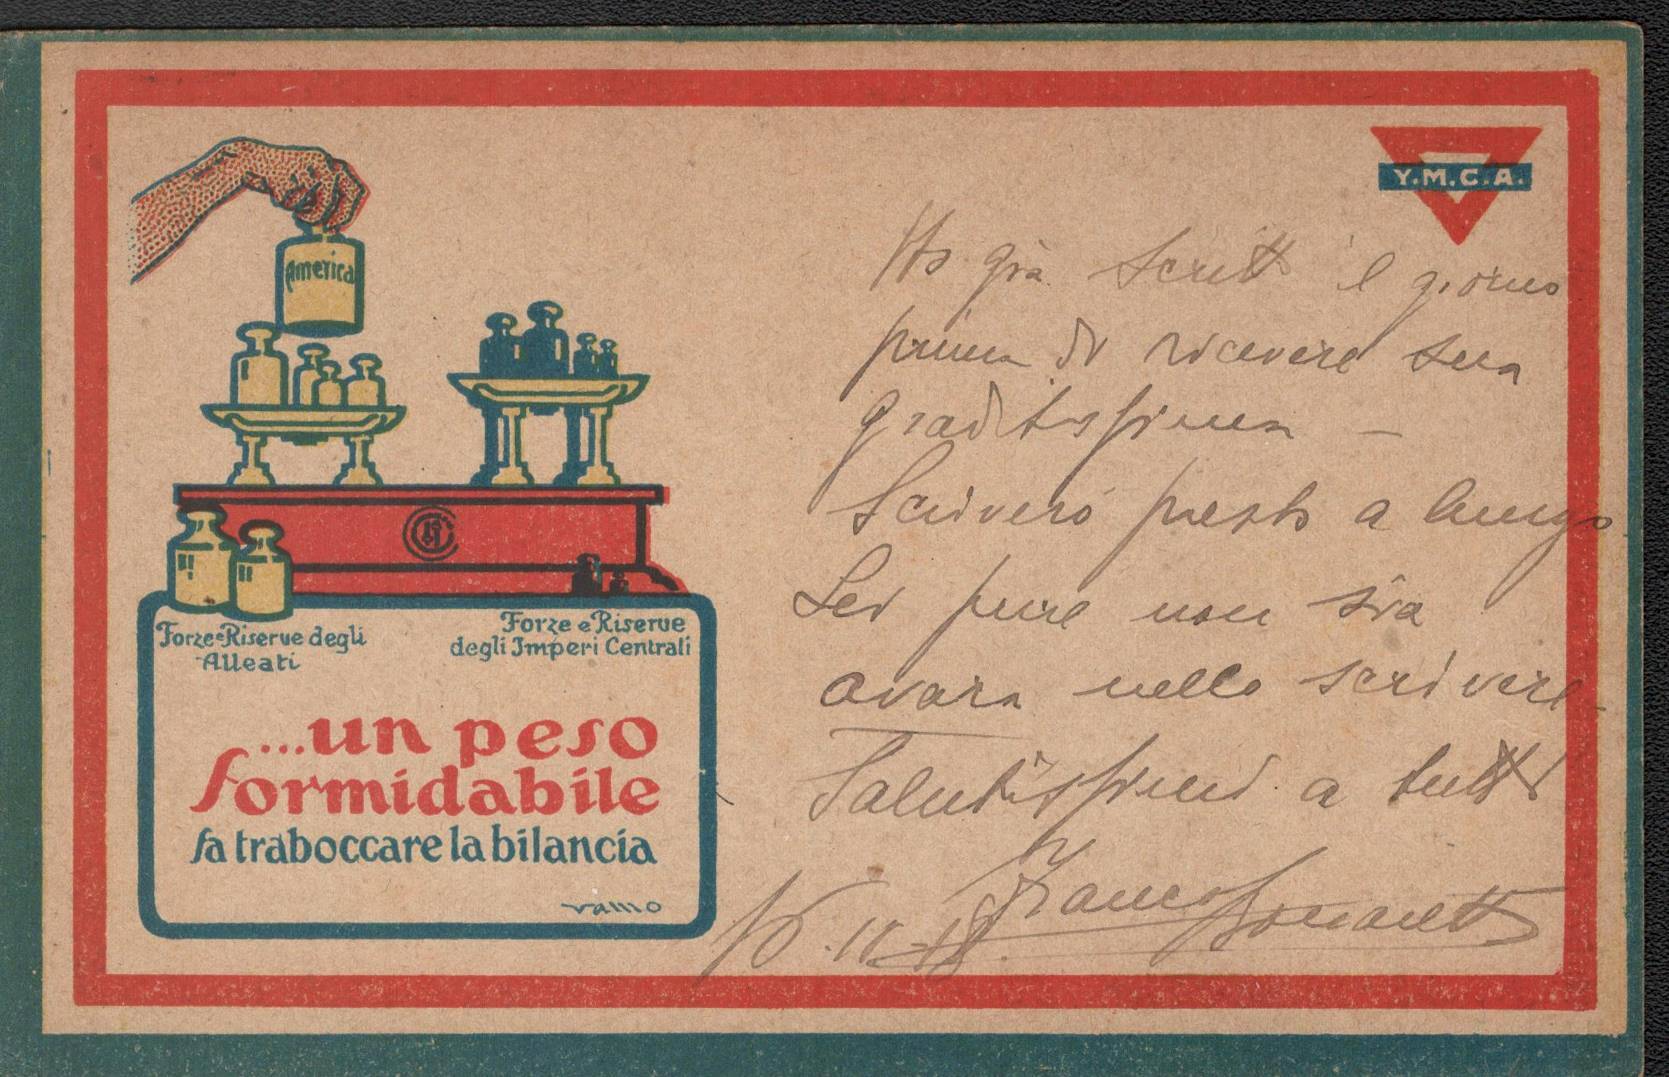 America
Y.M.C.A.
Forze e Riserve degli
Alleati
Forze e Riserve
degli Imperi Centrali
...un peso
formidabile
fa traboccare la bilancia
vamo
Ho già scritt il giorno
prima di ricevere sua
graditissima -
Scriverò presto a lungo
Lei pure non sia
avara nello scrivere -
Salutissimi a tutti
Franco